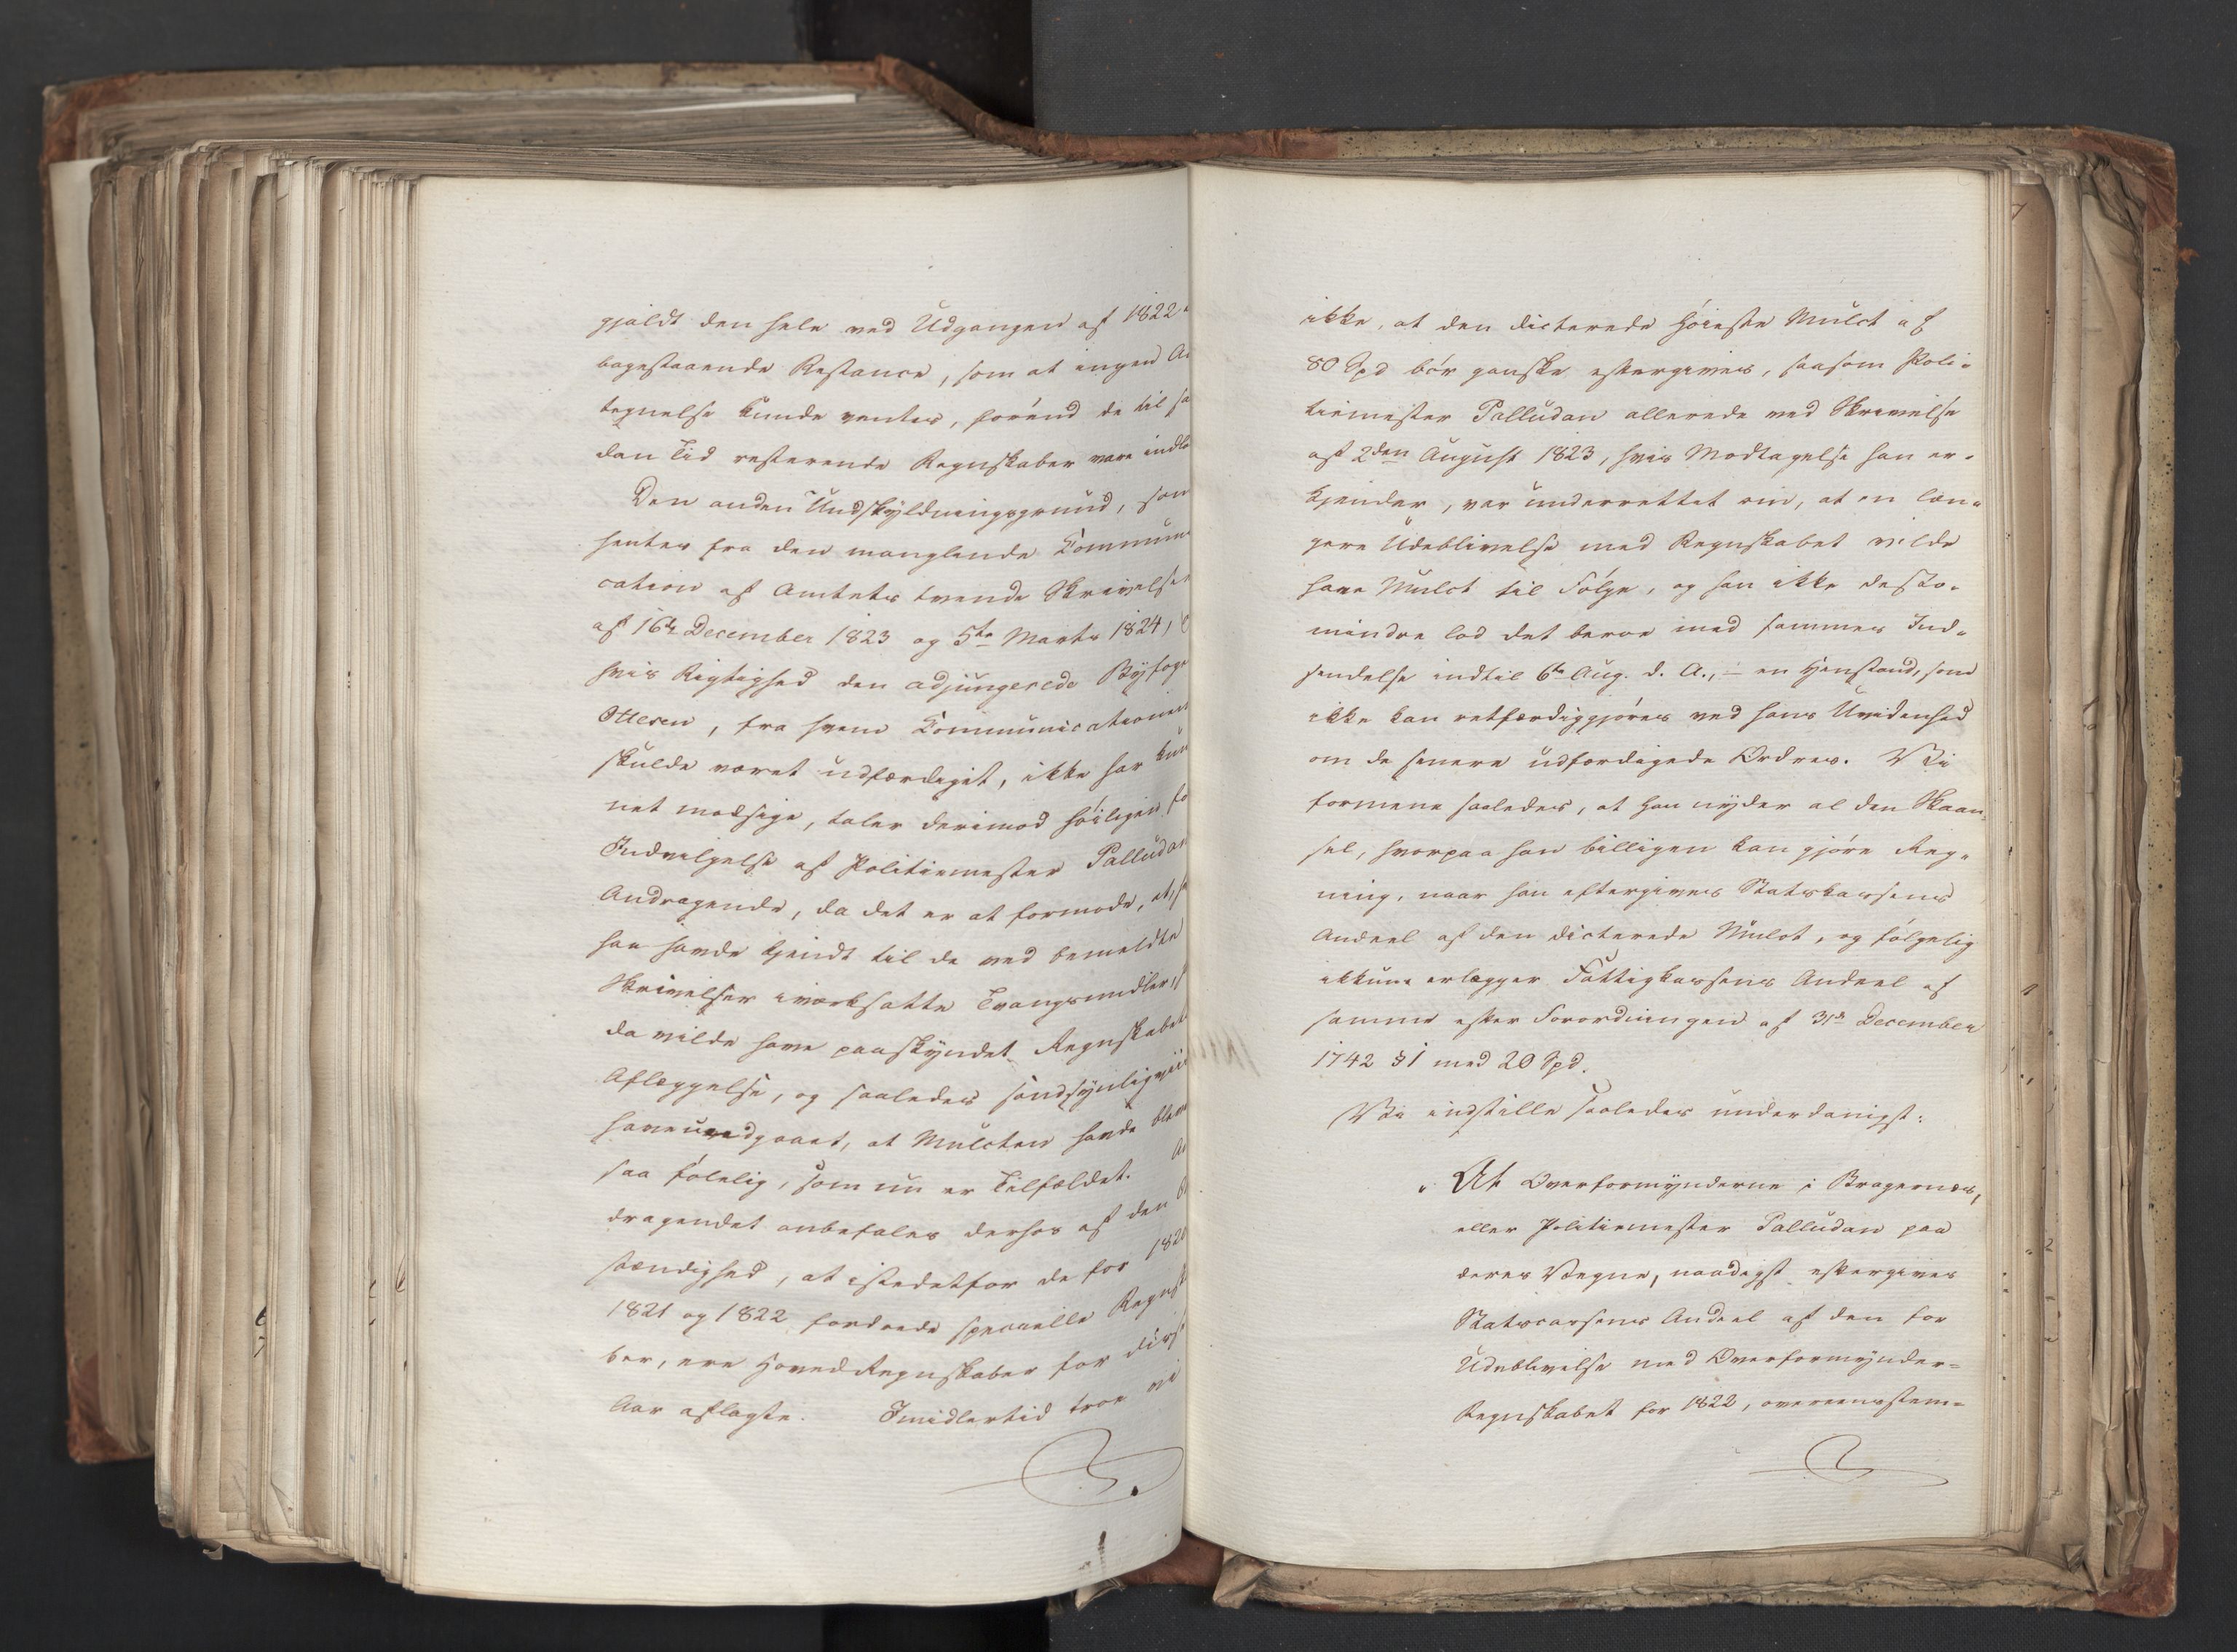 gjaldt den hele ved Udgangen af 1822
bagestaaende Restance, som at ingen
tegnelse kunde ventes, forend de til
dan Tid resterende Regnskaber vare indle
Den anden Undskyldningsgrund, som
hentes fra den manglende Communi
cation af Amtets tvende Skrivelser
af 16de December 1823 og 5te Marts 1824,
hvis Rigtighed den adjungerede Byfoge
Ottesen, fra hvem Communicationen
skulde været udfærdiget, ikke har kun
net modsige, taler derimod høiligen fo
Indvilgelse af Politiemester Palludan
Andragende, da det er at formode, at,
han havde kjendt til de ved bemeldte
Skrivelser iværksatte Tvangsmidler,
da vilde have paaskyndet Regnskabet
Aflæggelse, og saaledes sandsynligvii
have undgaaet, at Mulcten havde bleve
saa følelig, som nu er Tilfældet.
dragendet anbefales derhos af den
stændighed, at istedetfor de for 1820
1821 og 1822 fordrede specielle Regnsk
ber, ere Hoved-Regnskaber for diss
Aar aflagte. Imidlertid troe vi
ikke, at den dicterede høieste Mulct af
80 Spd bør ganske eftergives, saasom Poli-
tiemester Palludan allerede ved Skrivelse
af 2den August 1823, hvis Modtagelse han er-
kjender, var underrettet om, at en læn-
gere Udeblivelse med Regnskabet vilde
have Mulct til Følge, og han ikke desto-
mindre lod det beroe med sammes Ind-
sendelse indtil 6te Aug. d. A., – en Henstand, som
ikke kan retfærdiggjøres ved hans Uvidenhed
om de senere udfærdigede Ordres. Vi
formene saaledes, at han nyder al den Skaan-
sel, hvorpaa han billigen kan gjøre Reg-
ning, naar han eftergives Statskassens
Andeel af den dicterede Mulct, og følgelig
ikkuns erlægger Fattigkassens Andeel af
samme efter Forordningen af 31te December
1742 § 1 med 20 Spd.
Vi indstille saaledes underdanigst:
At Overformynderne i Bragernæs,
eller Politiemester Palludan paa
deres Vegne, naadigst eftergives
Statscassens Andeel af den for
Udeblivelse med Overformynder-
Regnskabet for 1822, overeensstem-